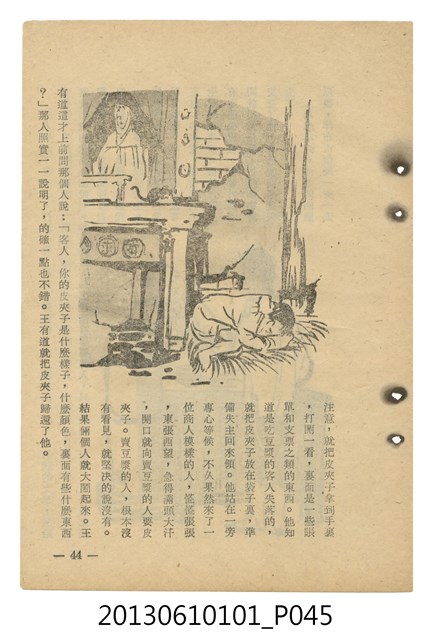 注意，就把皮夾子拿到手裏
，打開一看，裏面是一些賬
單和支票之類的東西。他知
道是吃豆漿的客人失落的，
就把皮夾子放在袋子裏，準
備失主回來領。他站在一旁
專心等候，不久果然來了一
位商人模樣的人，慌慌張張
，東張西望，急得滿頭大汗
，開口就向賣豆漿的人要皮
夾子。賣豆漿的人，根本沒
有看見，就堅決的說沒有。
結果倆個人就大鬧起來。王
有道這才上前問那個人說：「客人，你的皮夾子是什麼樣子，什麼顏色，裏面有些什麼東西
？」那人照實一一說明了，的確一點也不錯。王有道就把皮夾子歸還了他。
— 44 —
20130610101_P045